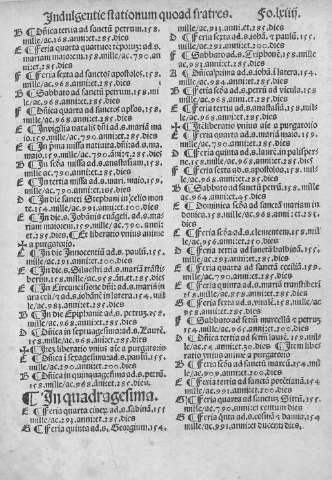 Indulgentie stationum quoad fratres. Fo. lxiiij
B Dñica tertia ad sanctũ petrum. 158.
mille/ac. 968. anni: et. 285. dies
E Feria quarta quattuor tẽporuz: ad. s.
mariam maiorem. 158. mille/ac. 790. an
ni: et. 285. dies
F Feria sexta ad sanctos apostolos. 158.
mille/ac. 968. anni: et. 285. dies
G Sabbato ad sanctũ petrum. 158. mille
/ac. 968. anni: et. 285. dies
F Dñica quarta ad sanctos aplõs. 158.
mille/ac. 968. anni: et. 285. dies
E In vigilia natalis dñi ad. s. mariã ma
io. 159. mille/ac. 790. anni: et. 285. dies
E In pña missa natiuita. dñi: ad. s. ma.
maio. 159. mille/ac. 790. anni: et. 285. dies
B In scõa missa ad. s. anastasiam. 158.
mille/ac. 290. anni: et. 285. dies
E In tertia missa ad. s. mari. maio. 159.
mille/ac. 790. anni: et. 285. dies
E In die sancti Stephani in celio mon
te. 154. mille/ac. 991. anni: et. 200. dies
E In die. s. Johãnis euãgeli. ad. s. ma
riam maiorem. 159. mille/ac. 790. anni:
et. 285. dies. Et liberatio vnius anime
a purgatorio
E In die. s. Innocentũ ad. s. paulũ. 155.
mille/ac. 291. anni: et. 285. dies
E In die. s. Siluestri ad. s. mariã trãsti
berim. 155. mille/ac. 957. ãn. et. 285. dies
E In Circuncisione dñi: ad. s. mariã in
ara celi/ad. s. johãnẽ in latera. 154. mil
le/ac. 291. anni: et. 285. dies
B In die Epiphanie ad. s. petruz. 158.
mille/ac. 968. anni: et. 285. dies
D Dñica in septuagesima: ad. s. Laurẽ.
158. mille/ac. 968. anni: et. 285. dies
Itez liberatio vnius aĩe a purgatorio
D Dñica i sexagesima: ad. s. paulũ. 155.
mille/ac. 291. anni: et. 200. dies
B Dñica in quinquagesima ad. s. petrũ.
158. mille/ac. 968. ãni: et. 285. dies.
In quadragesima.
E Feria quarta ciner. ad. s. sabinã. 155
mille/ac. 291. anni: et. 285. dies
B Feria quinta ad. s. Georgium. 154.
mille/ac. 911. anni: et. 285. dies
D Feria sexta ad. s. iohã. et. s. paulũ. 155.
mille/ac. 291. anni: et. 285. dies
F Sabbato ad. s. Triphonẽ. 155. mille
/ac. 291. anni: et. 285. dies
A Dñica prima ad. s. iohã. ĩ latera. 154.
mille/ac. 984. anni: et. 285. dies
B Feria scõa ad. s. petrũ ad vicula. 158
mille/ac. 291. anni: et. 285. dies
E Feria tertia ad. s. anastasiã. 158. mil
le/ac. 965. anni: et. 285. dies
Itẽ liberatio vnius aĩe a purgatorio
E Feria quarta ad. s. mariã maio. 159.
mille/ac. 790. anni: et. 285. dies
D Feria quinta ad. s. laurẽ. in palisper.
155. mille/ac. 291. anni: et. 285. dies
F Feria sexta ad. s. apostolos. 158. mil
le/ac. 291. anni: et. 285. dies
B Sabbato ad sanctũ petrũ. 158. mille
/ac. 968. anni: et. 45. dies
E Dominica scõa ad sanctã mariam in
donica. 158. mille/ac. 968. anni: et. 285.
dies
E Feria scõa ad. s. clementem. 158. mil
le/ac. 956. anni: et. 120. dies
D Feria tertia ad sanctã balbinã. 155.
mille/ac. 291. anni: et. 285. dies
E Feria quarta ad sanctã ceciliã. 158.
mille/ac. 290. anni: et. 285. dies
E Feria quinta ad. s. mariã transtiberĩ.
158. mille/ac. 957. anni: et. 285. dies
G Feria sexta ad. s. vitalẽ. 158. mille/ac.
958. anni: et. 285. dies
G Sabbato ad sctm marcellũ et petruz
154. mille/ac. 965. anni: et. 200. dies
D Dñica tertia ad sctm laurẽ. 159. mil
le/ac. 4. anni: et. 30. dies. Item liber
ratio vnius anime a purgatorio
F Feria scõa ad sanctũ marcũ. 154. mil
le/ac. 909. anni: et. 200. dies
F Feria tertia ad sanctã potẽtianã. 154
mille/ac. 991. anni: et. 200. dies
G Feria quarta ad sanctuz Sixtũ. 155.
mille/ac. 791. anni: et centum dies
G Feria qnta ad. s. cosmã et damia. 154
mille/ac. 991. anni: et ducenti dies.